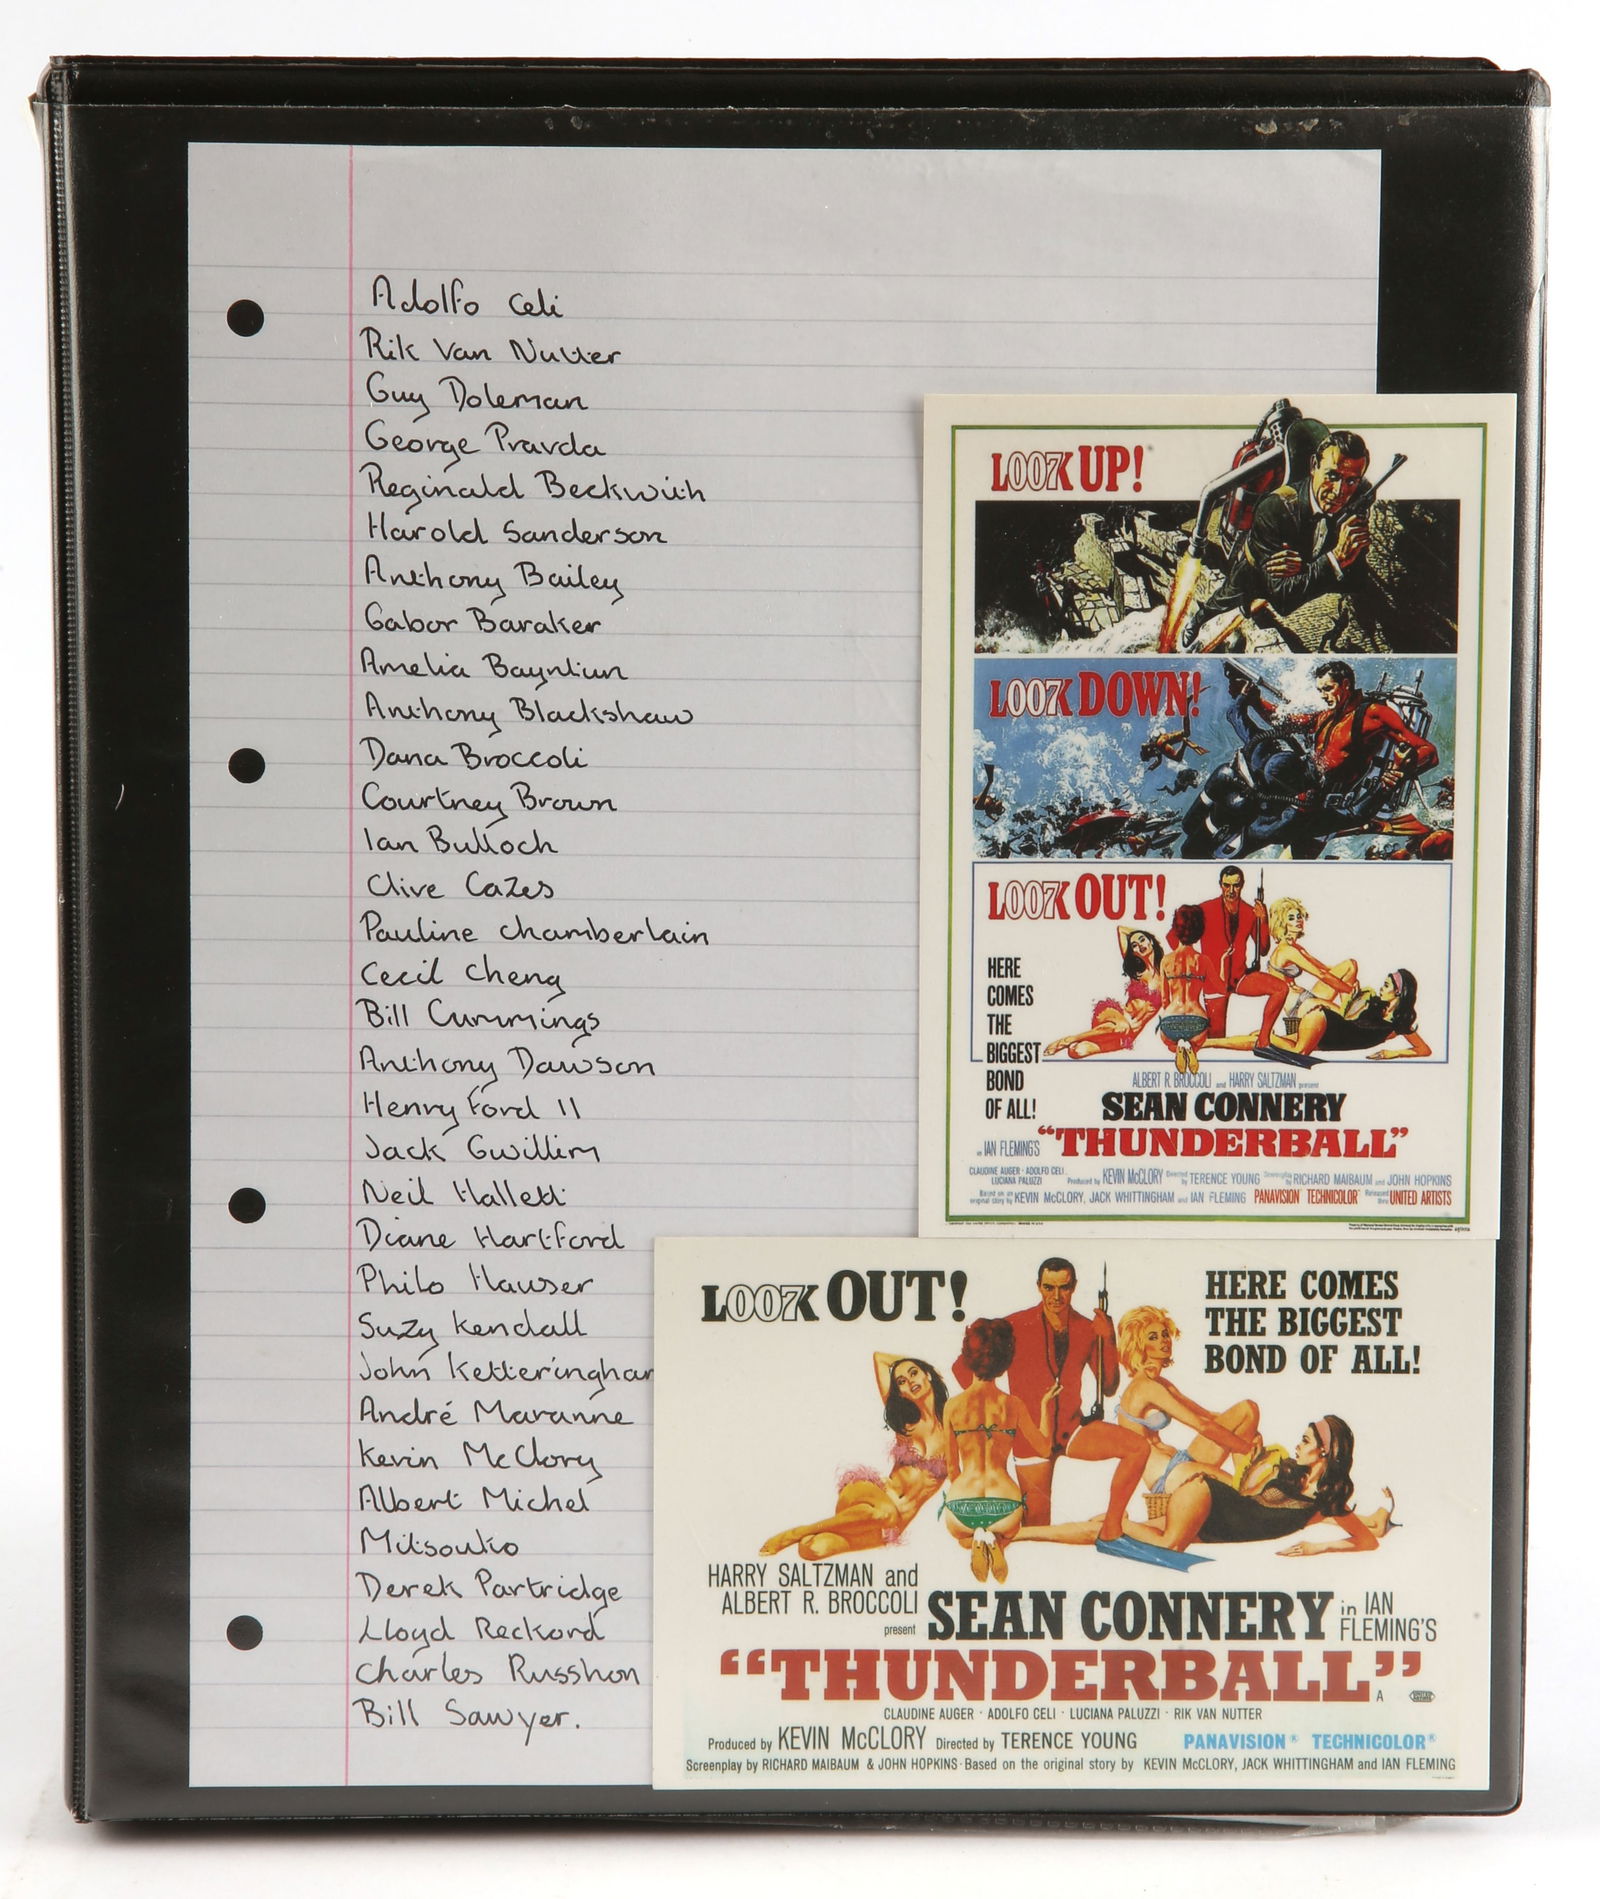 Adolfo Celi
Rik Van Nutter
Guy Doleman
George Pravda
Reginald Beckwith
Harold Sanderson
Anthony Bailey
Gabor Baraker
Amelia Bayntun
Anthony Blackshaw
Dana Broccoli
Courtney Brown
Ian Bulloch
Clive Cazes
Pauline Chamberlain
Cecil Cheng
Bill Cummings
Anthony Dawson
Henry Ford II
Jack Gwillim
Neil Hallett
Diane Hartford
Philo Hauser
Suzy Kendall
John Ketteringham
André Maranne
Kevin McClory
Albert Michel
Mitsouko
Derek Partridge
Lloyd Reckord
Charles Russhon
Bill Sawyer.
LOO7K UP!
LOO7K DOWN!
LOO7K OUT!
HERE
COMES
THE
BIGGEST
BOND
OF ALL!
ALBERT R. BROCCOLI and HARRY SALTZMAN present
SEAN CONNERY
in IAN FLEMING'S "THUNDERBALL"
CLAUDINE AUGER · ADOLFO CELI
LUCIANA PALUZZI
Produced by KEVIN McCLORY Directed by TERENCE YOUNG Screenplay by RICHARD MAIBAUM and JOHN HOPKINS
Based on an original story by KEVIN McCLORY, JACK WHITTINGHAM and IAN FLEMING PANAVISION® TECHNICOLOR® Released thru UNITED ARTISTS
LOO7K OUT!
HERE COMES
THE BIGGEST
BOND OF ALL!
HARRY SALTZMAN and
ALBERT R. BROCCOLI
present
SEAN CONNERY
in IAN
FLEMING'S
"THUNDERBALL"
A
CLAUDINE AUGER · ADOLFO CELI · LUCIANA PALUZZI · RIK VAN NUTTER
Produced by KEVIN McCLORY Directed by TERENCE YOUNG PANAVISION® TECHNICOLOR®
Screenplay by RICHARD MAIBAUM & JOHN HOPKINS · Based on the original story by KEVIN McCLORY, JACK WHITTINGHAM and IAN FLEMING